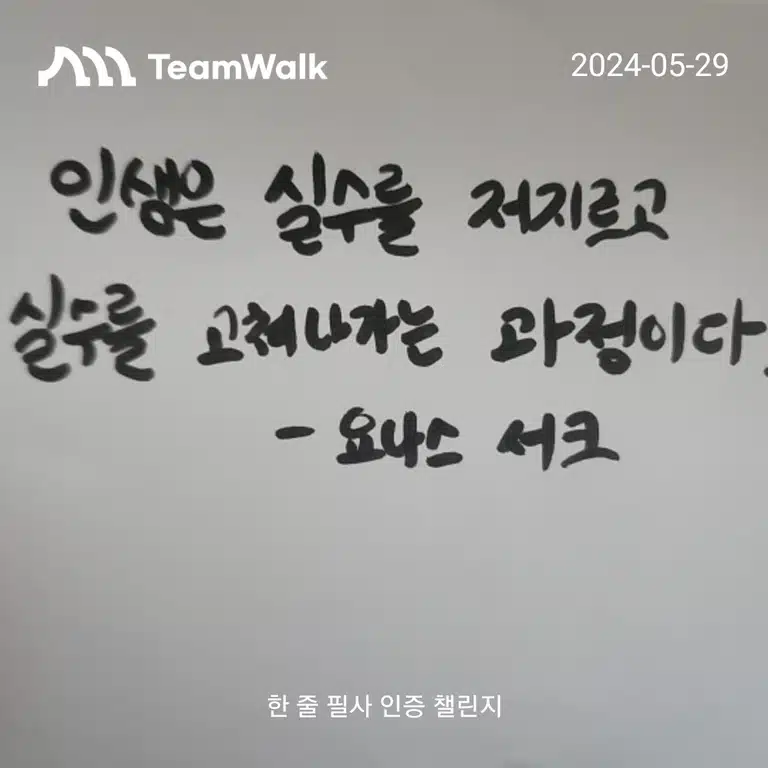 TeamWalk 2024-05-29
인생은 실수를 저지르고
실수를 고쳐나가는 과정이다.
- 요나스 서크
한 줄 필사 인증 챌린지